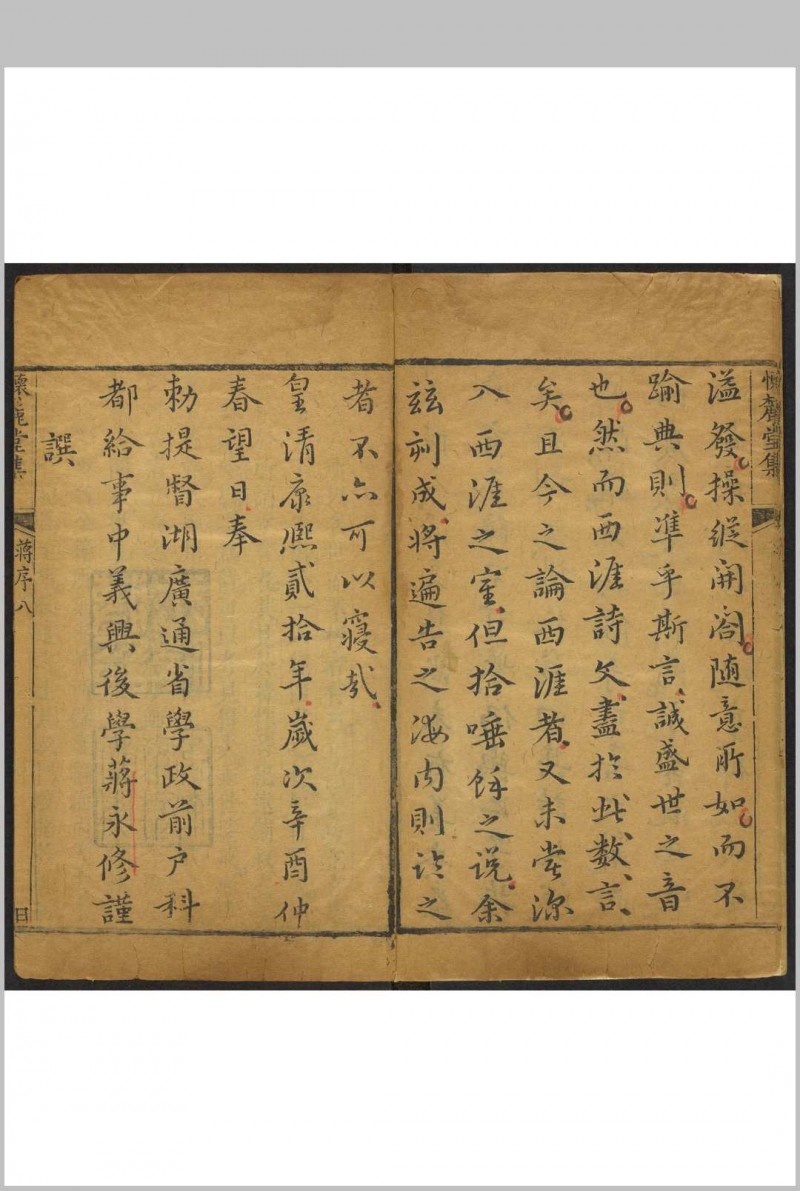 懷麓堂集
溢發操縱開闔随意所如而不
踰典則準乎斯言誠盛世之音
也然而西涯詩文盡於此數言
矣且今之論西涯者又未嘗深
入西涯之室但拾唾餘之說余
玆刻成將遍告之海内則論之
者不亦可以寢哉
皇清康熙貳拾年歲次辛酉仲
春望日奉
勅提督湖廣通省學政前户科
都給事中義興後學蔣永修謹
譔
懷麓堂集
蔣序八